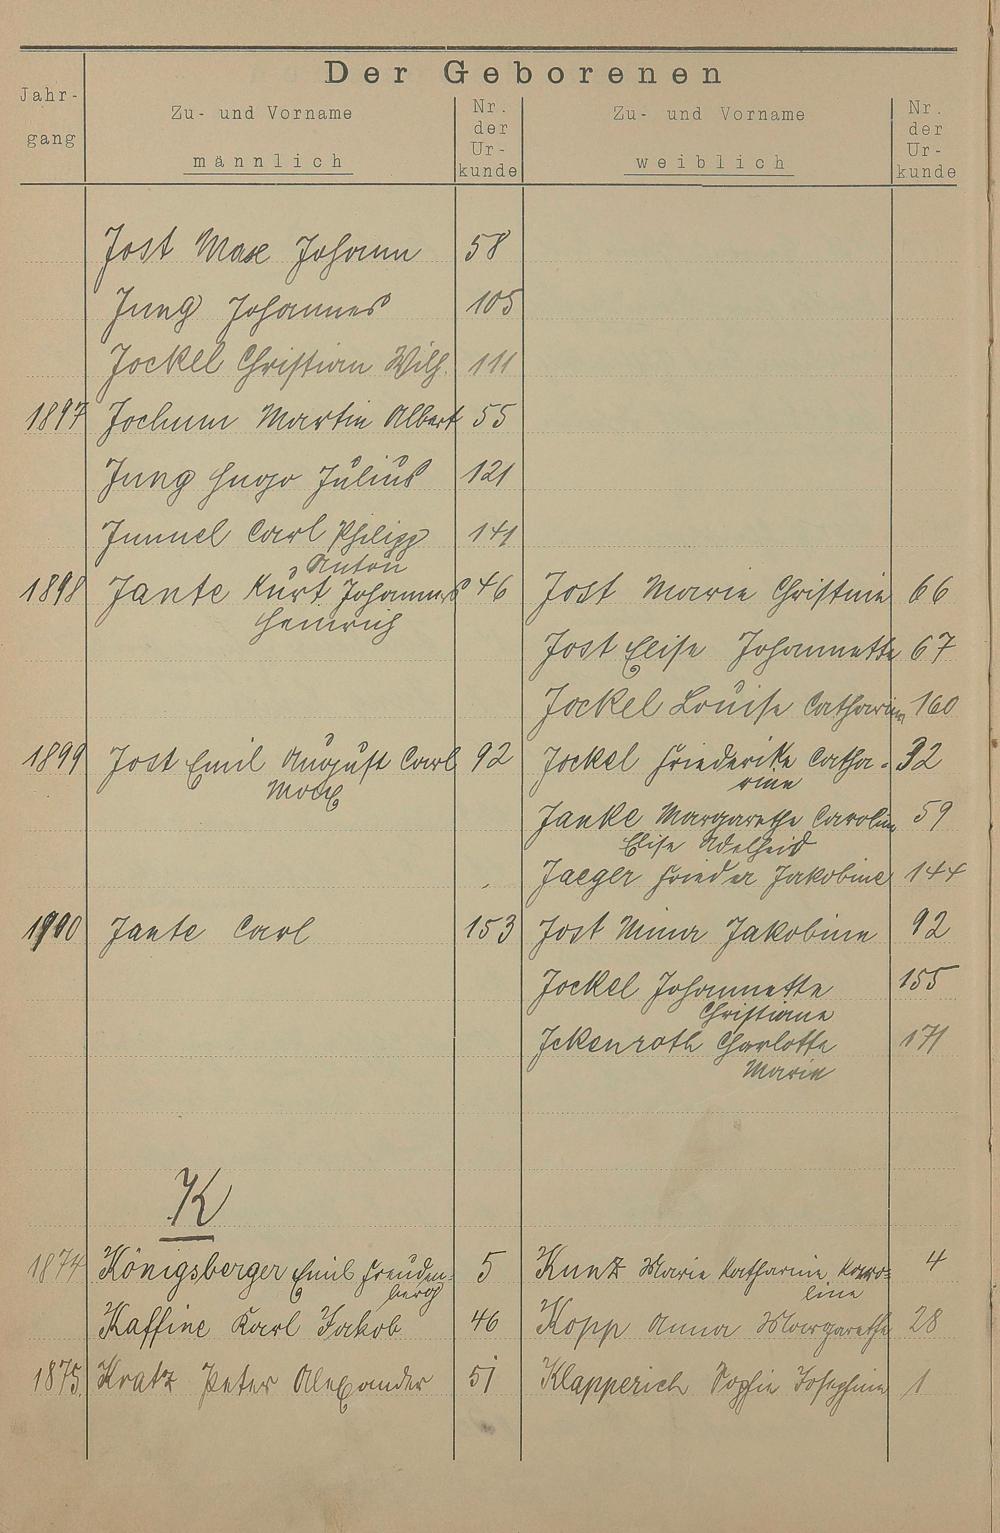 Der Geborenen
Jahr-
gang
Zu- und Vorname
männlich
Nr.
der
Ur-
kunde
Zu- und Vorname
weiblich
Nr.
der
Ur-
kunde
Jost Max Johann 58
Jung Johannes 105
Jockel Christian Wilh. 111
1897 Jochum Martin Albert 55
Jung Hugo Julius 121
Jummel Carl Philipp 141
Anton
1898 Jante Kurt Johannes 46 Jost Marie Christine 66
Heinrich
Jost Elise Johannette 67
Jockel Louise Catharine 160
1899 Jost Emil August Carl 92 Jockel Friederike Catha- 32
Max rine
Janke Margarethe Caroline 59
Elise Adelheid
Jaeger Frieda Jakobine 144
1900 Jante Carl 153 Jost Mina Jakobine 92
Jockel Johannette 155
Christiane
Jckenroth Charlotte 171
Marie
K
1874 Königsberger Emil Freuden- 5 Kunz Marie Katharine Karo= 4
berg line
Kaffine Karl Jakob 46 Kopp Anna Margarethe 28
1875. Kratz Peter Alexander 51 Klapperich Sophie Josephine 1